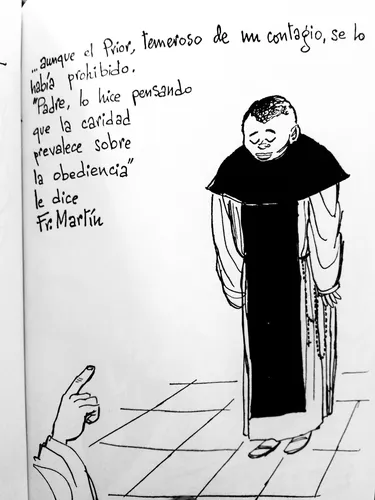 ...aunque el Prior, temeroso de un contagio, se lo
había prohibido.
"Padre, lo hice pensando
que la caridad
prevalece sobre
la obediencia"
le dice
Fr. Martín